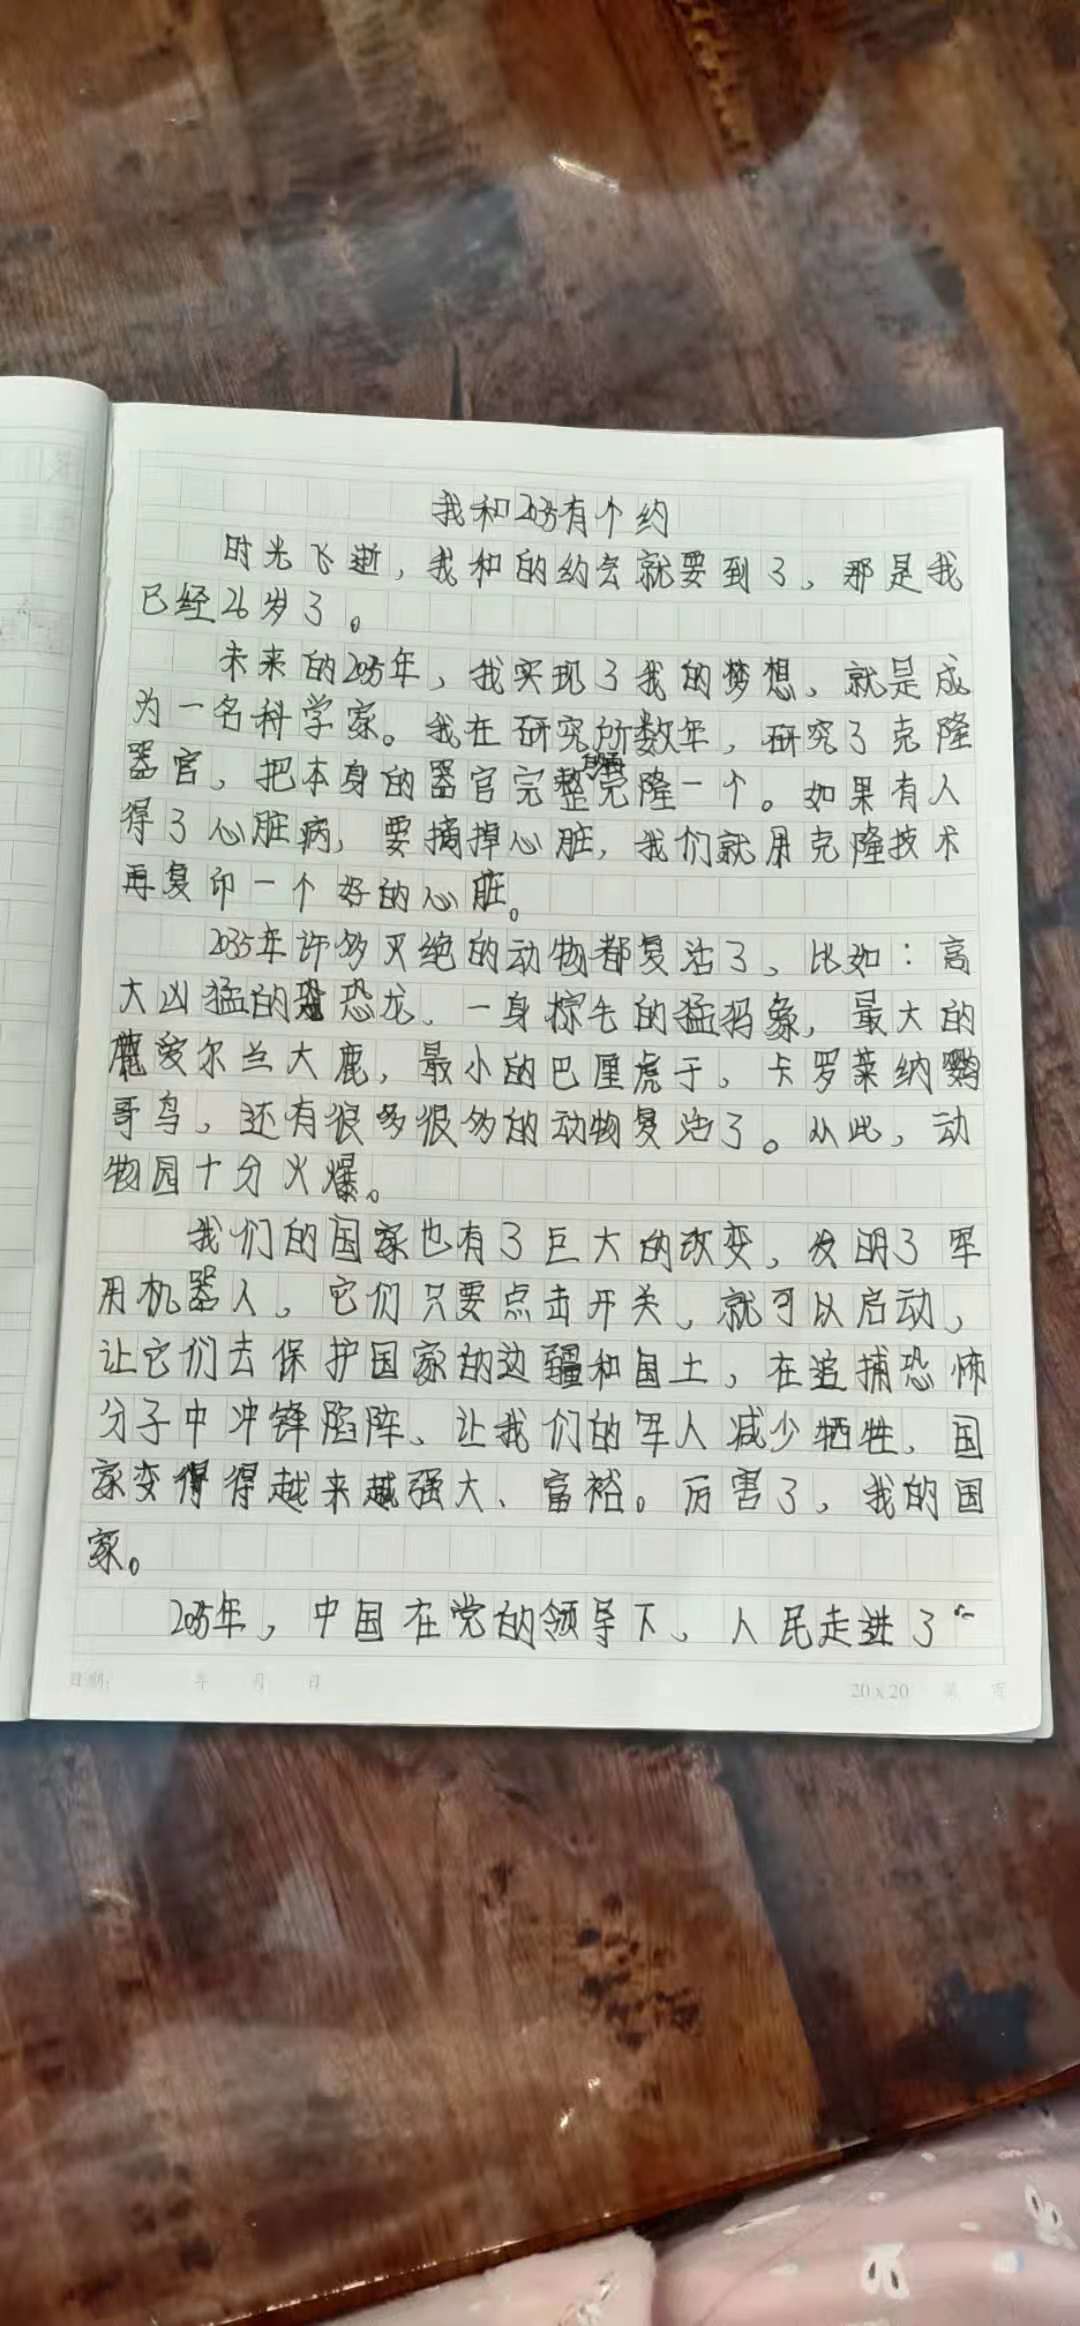 我和2035有个约
时光飞逝，我和的约会就要到了，那是我
已经26岁了。
未来的2035年，我实现了我的梦想，就是成
为一名科学家。我在研究所数年，研究了克隆
器官，把本身的器官完整克隆一个。如果有人
得了心脏病，要摘掉心脏，我们就用克隆技术
再复印一个好的心脏。
2035年许多灭绝的动物都复活了，比如：高
大凶猛的恐龙、一身棕毛的猛犸象，最大的
鹿爱尔兰大鹿，最小的巴厘虎于，卡罗莱纳鹦
哥鸟，还有很多很多的动物复活了。从此，动
物园十分火爆。
我们的国家也有了巨大的改变，发明了军
用机器人，它们只要点击开关，就可以启动，
让它们去保护国家的边疆和国土，在追捕恐怖
分子中冲锋陷阵、让我们的军人减少牺牲，国
家变得得越来越强大、富裕。厉害了，我的国
家。
2035年，中国在党的领导下，人民走进了“
日期： 年 月 日 20x20 第 页